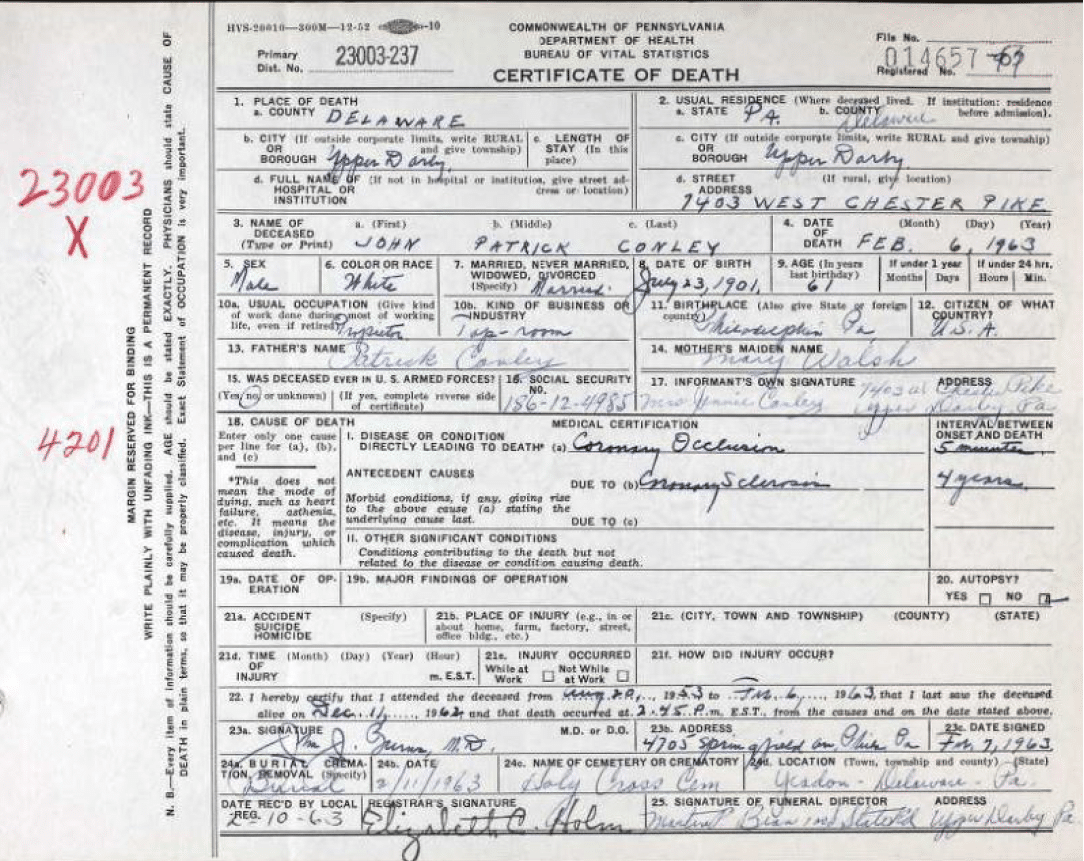 HVS-20010—300M—12-52 -10
COMMONWEALTH OF PENNSYLVANIA
DEPARTMENT OF HEALTH
BUREAU OF VITAL STATISTICS
CERTIFICATE OF DEATH
Primary
Dist. No. 23003-237
File No.
014657-63
Registered No.
23003
X
4201
MARGIN RESERVED FOR BINDING
WRITE PLAINLY WITH UNFADING INK—THIS IS A PERMANENT RECORD
N. B.—Every item of information should be carefully supplied. AGE should be stated EXACTLY. PHYSICIANS should state CAUSE OF
DEATH in plain terms, so that it may be properly classified. Exact Statement of OCCUPATION is very important.
1. PLACE OF DEATH
a. COUNTY DELAWARE
2. USUAL RESIDENCE (Where deceased lived. If institution: residence
a. STATE PA. b. COUNTY Delaware before admission).
b. CITY (If outside corporate limits, write RURAL
OR and give township)
BOROUGH Upper Darby
c. LENGTH OF
STAY (in this
place)
c. CITY (If outside corporate limits, write RURAL and give township)
OR
BOROUGH Upper Darby
d. FULL NAME OF (If not in hospital or institution, give street ad-
HOSPITAL OR dress or location)
INSTITUTION
d. STREET (If rural, give location)
ADDRESS
7403 WEST CHESTER PIKE
3. NAME OF a. (First) b. (Middle) c. (Last)
DECEASED
(Type or Print) JOHN PATRICK CONLEY
4. DATE (Month) (Day) (Year)
OF
DEATH FEB. 6, 1963
5. SEX
Male
6. COLOR OR RACE
White
7. MARRIED, NEVER MARRIED,
WIDOWED, DIVORCED
(Specify) Married
8. DATE OF BIRTH
July 23, 1901
9. AGE (In years
last birthday)
61
If under 1 year
Months Days
If under 24 hrs.
Hours Min.
10a. USUAL OCCUPATION (Give kind
of work done during most of working
life, even if retired) Proprietor
10b. KIND OF BUSINESS OR
INDUSTRY
Tap-room
11. BIRTHPLACE (Also give State or foreign
country)
Philadelphia Pa
12. CITIZEN OF WHAT
COUNTRY?
U.S.A.
13. FATHER'S NAME
Patrick Conley
14. MOTHER'S MAIDEN NAME
Mary Walsh
15. WAS DECEASED EVER IN U. S. ARMED FORCES?
(Yes, no, or unknown) (If yes, complete reverse side
of certificate)
16. SOCIAL SECURITY
NO.
186-12-4985
17. INFORMANT'S OWN SIGNATURE ADDRESS
Mrs Jennie Conley 7403 W Chester Pike
Upper Darby Pa
18. CAUSE OF DEATH
Enter only one cause
per line for (a), (b),
and (c)
*This does not
mean the mode of
dying, such as heart
failure, asthenia,
etc. It means the
disease, injury, or
complication which
caused death.
MEDICAL CERTIFICATION
I. DISEASE OR CONDITION
DIRECTLY LEADING TO DEATH* (a) Coronary Occlusion
ANTECEDENT CAUSES
DUE TO (b) Coronary Sclerosis
Morbid conditions, if any, giving rise
to the above cause (a) stating the
underlying cause last.
DUE TO (c)
II. OTHER SIGNIFICANT CONDITIONS
Conditions contributing to the death but not
related to the disease or condition causing death.
INTERVAL BETWEEN
ONSET AND DEATH
5 minutes
4 years
19a. DATE OF OP-
ERATION
19b. MAJOR FINDINGS OF OPERATION
20. AUTOPSY?
YES NO
21a. ACCIDENT (Specify)
SUICIDE
HOMICIDE
21b. PLACE OF INJURY (e.g., in or
about home, farm, factory, street,
office bldg., etc.)
21c. (CITY, TOWN AND TOWNSHIP) (COUNTY) (STATE)
21d. TIME (Month) (Day) (Year) (Hour)
OF
INJURY m. E.S.T.
21e. INJURY OCCURRED
While at Not While
Work at Work
21f. HOW DID INJURY OCCUR?
22. I hereby certify that I attended the deceased from Aug 20, 1953 to Feb. 6, 1963, that I last saw the deceased
alive on Dec. 11, 1962, and that death occurred at 2.45 P.m. E.S.T., from the causes and on the date stated above.
23a. SIGNATURE M.D. or D.O.
Wm J. Burns, M.D.
23b. ADDRESS
4705 Springfield av, Phila Pa
23c. DATE SIGNED
Feb. 7, 1963
24a. BURIAL, CREMA-
TION, REMOVAL (Specify)
Burial
24b. DATE
2/11/1963
24c. NAME OF CEMETERY OR CREMATORY
Holy Cross Cem
24d. LOCATION (Town, township and county) (State)
Yeadon - Delaware - Pa.
DATE REC'D BY LOCAL
REG.
2-10-63
REGISTRAR'S SIGNATURE
Elizabeth C. Holm
25. SIGNATURE OF FUNERAL DIRECTOR ADDRESS
State Rd Upper Darby Pa.